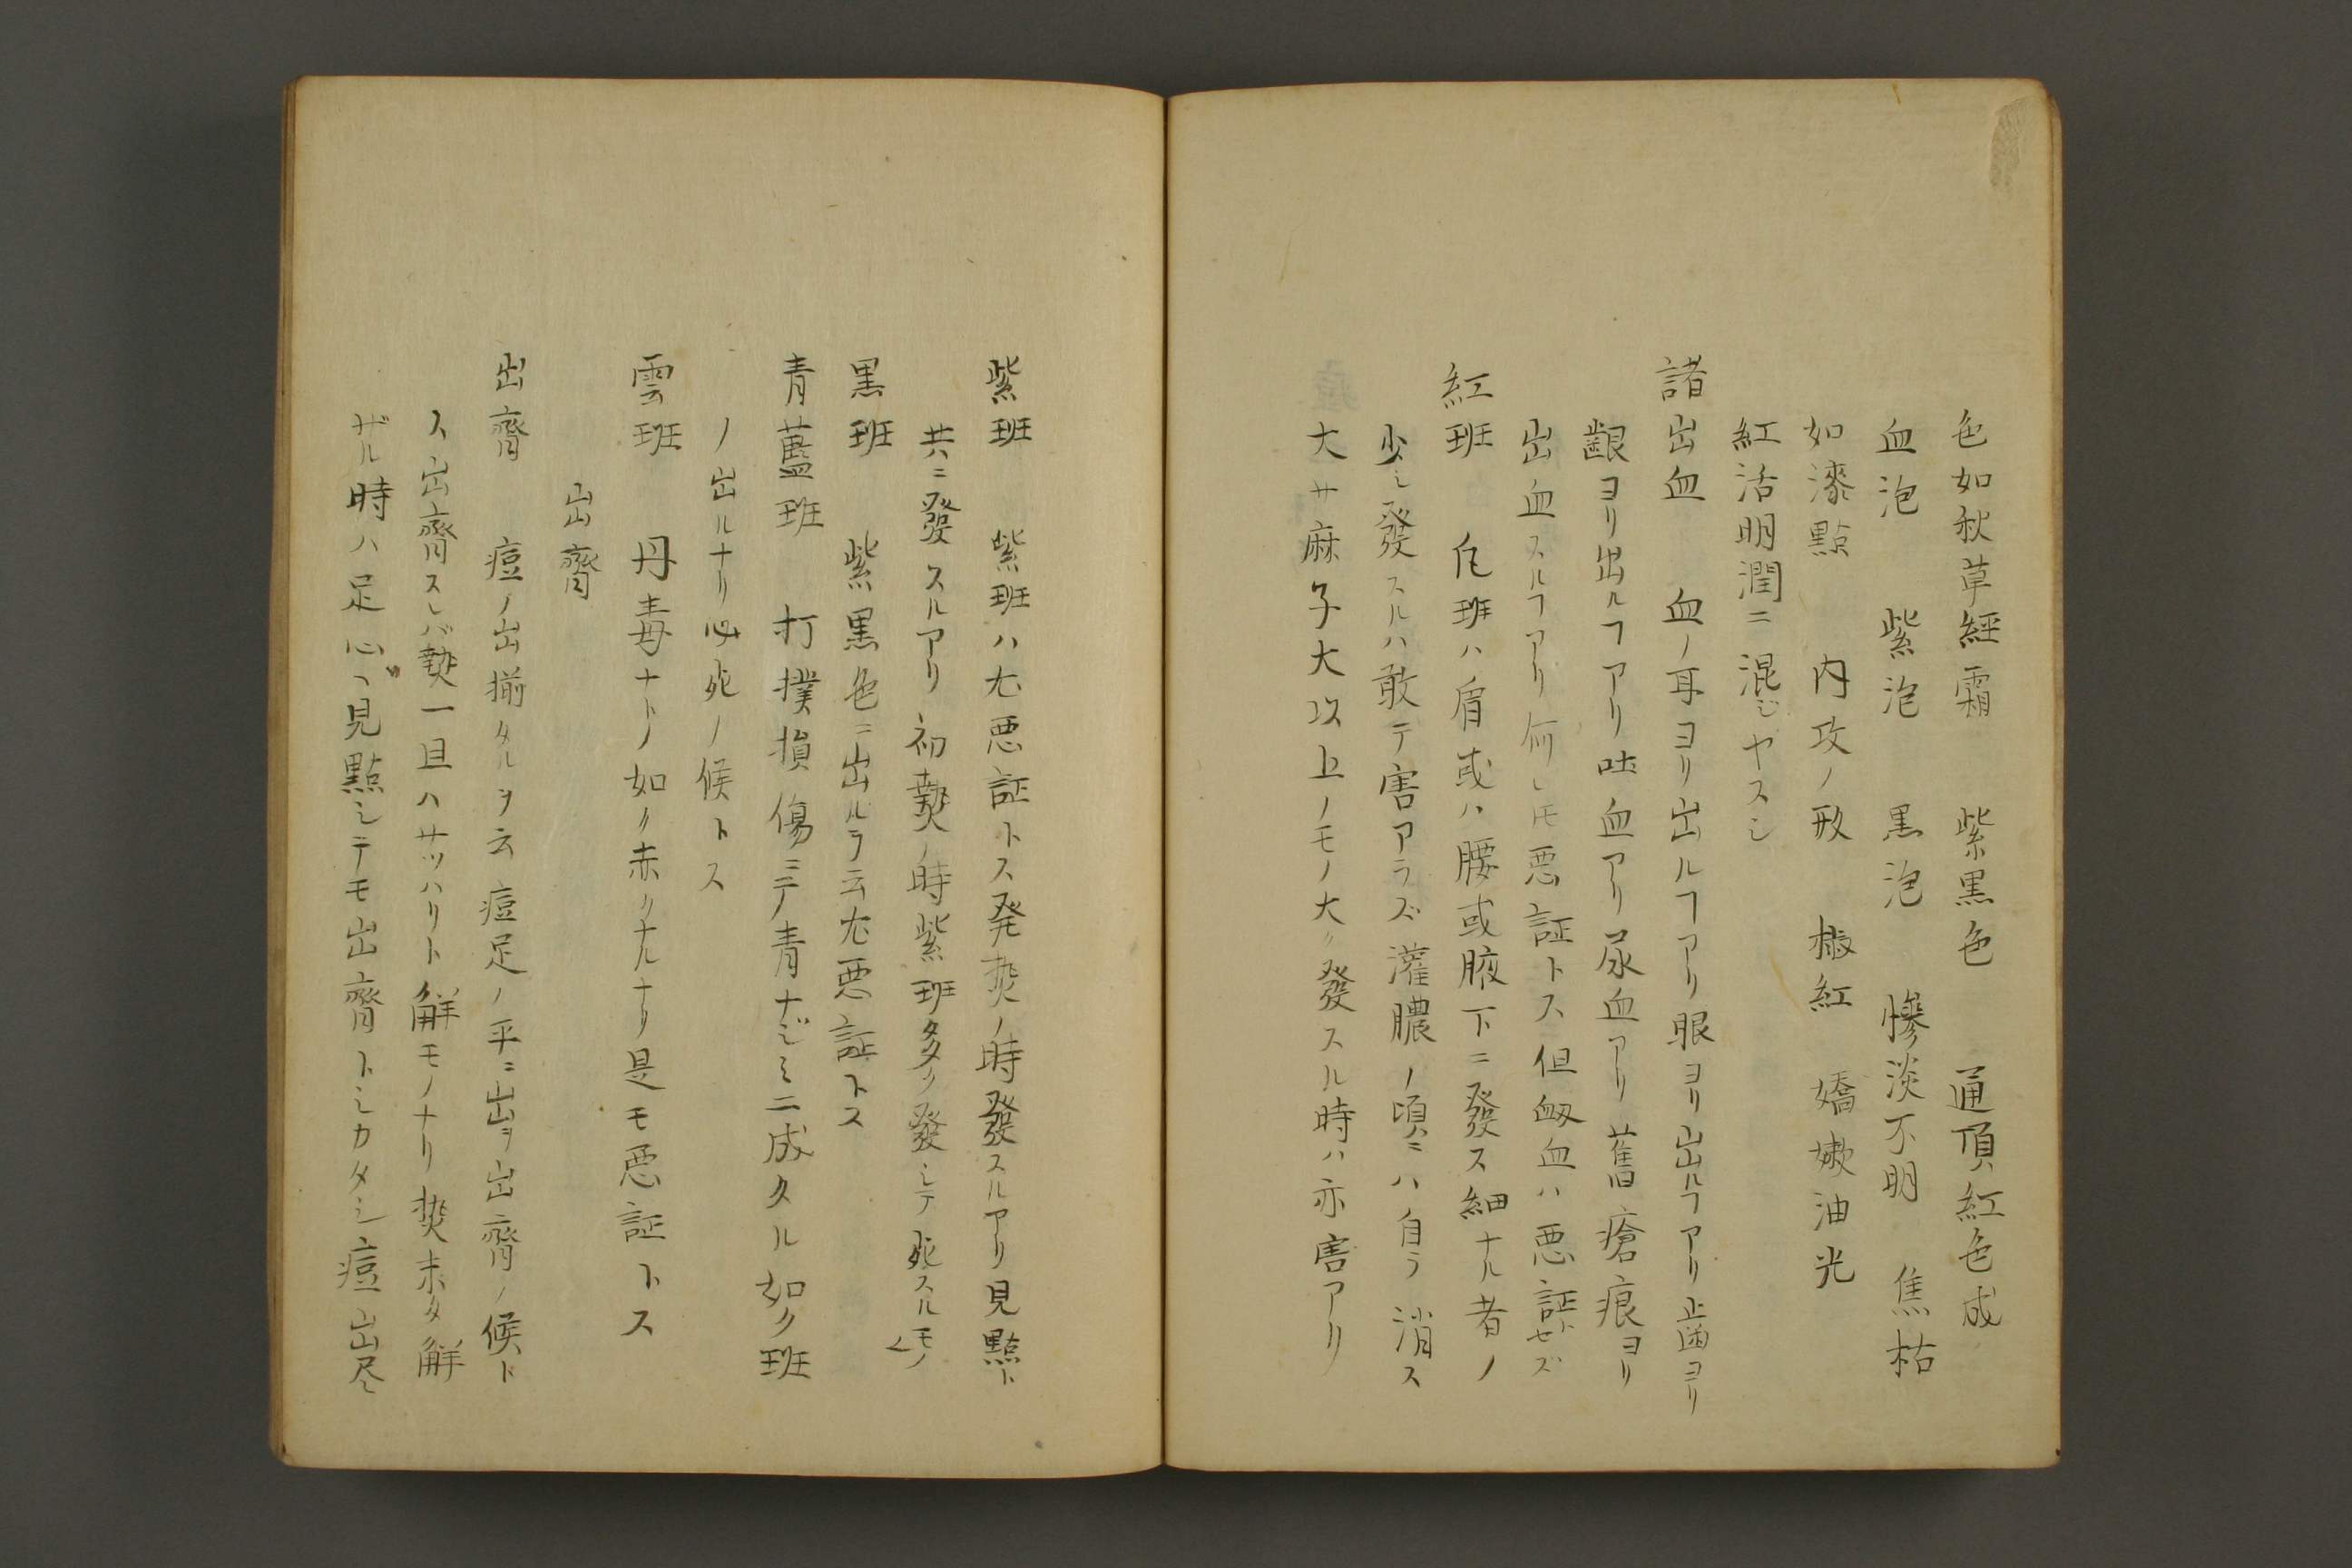 色如秋草經霜　紫黒色　通頂紅色成
血泡　紫泡　黒泡　慘淡不明　焦枯
如漆點　内攻ノ形　椒紅　嬌嫩油光
紅活明潤ニ混ジヤスシ
諸出血　血ノ耳ヨリ出ルヿアリ眼ヨリ出ルヿアリ歯ヨリ
齦ヨリ出ルヿアリ吐血アリ尿血アリ舊瘡痕ヨリ
出血スルヿアリ何レモ悪証トス但衂血ハ悪証トセズ
紅班　凡班ハ肩或ハ腰或腋下ニ發ス細ナル者ノ
少シ發スルハ敢テ害アラズ灌膿ノ頃ニハ自ラ消ス
大サ麻子大以上ノモノ大ク發スル時ハ亦害アリ
紫班　紫班ハ尤悪証トス発𤍠ノ時發スルアリ見點ト
共ニ發スルアリ初𤍠ノ時紫班多ク發シテ死スルモノ〱
黒班　紫黒色ニ出ルヲ云尤悪証トス
青藍班　打撲損傷ニテ青ナジミニ成タル如ク班
ノ出ルナリ必死ノ候トス
雲班　丹毒ナドノ如ク赤クナルナリ是モ悪証トス
出齊
出齊　痘ノ出揃タルヲ云痘足ノ平ニ出ヲ出齊ノ候ト
ス出齊スレバ𤍠一旦ハサツハリト解モノナリ𤍠未タ解
ザル時ハ足心ヘ見點シテモ出齊トシカタシ痘出尽シ